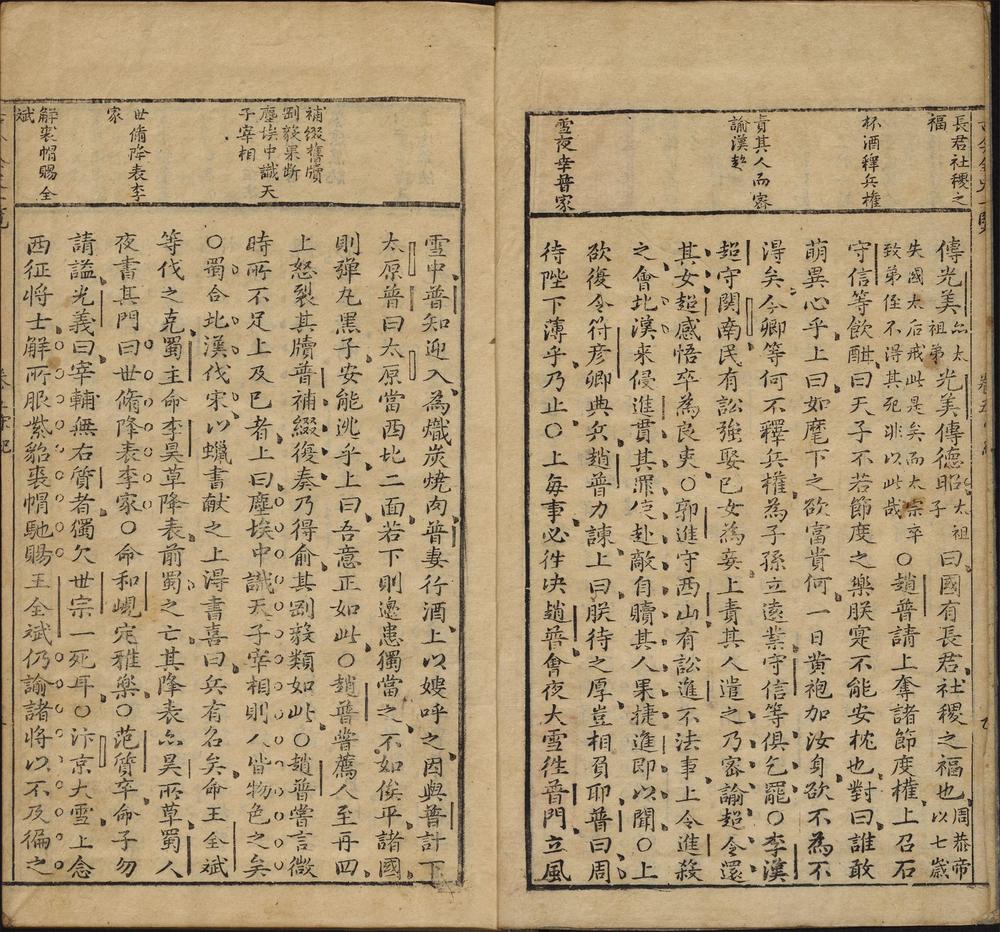 長君社稷之
福
杯酒釋兵權
責其人而密
諭漢超
雪夜幸普家
傳光美
亦太
祖弟
光美傳德昭
太祖
子
曰國有長君社稷之福也
周恭帝
以七歲
失國太后戒此是矣而太宗卒
致弟侄不得其死非以此哉
○趙普請上奪諸節度權上召石
守信等飲酣曰天子不若節度之樂朕寔不能安枕也對曰誰敢
萌異心乎上曰如麾下之欲富貴何一日黄袍加汝身欲不為不
得矣今卿等何不釋兵權為子孫立遠業守信等俱乞罷○李漢
超守関南民有訟強娶已女為妾上責其人遣之乃密諭超令還
其女超感悟卒為良吏○郭進守西山有訟進不法事上令進殺
之會北漢來侵進貫其罪使赴敵自贖其人果捷進即以聞○上
欲復令符彦卿典兵趙普力諫上曰朕待之厚豈相負耶普曰周
待陛下薄乎乃止○上每事必徃决趙普會夜大雪徃普門立風
補綴舊牘
剛毅果断
塵埃中識天
子宰相
世脩降表李
家
解裘帽賜全
斌
雪中普知迎入為熾炭燒肉普妻行酒上以嫂呼之因與普計下
太原普曰太原當西北二面若下則邊患獨當之不如俟平諸國
則彈丸黒子安能逃乎上曰吾意正如此○趙普嘗薦人至再四
上怒裂其牘普補綴復奏乃得俞其剛毅類如此○趙普嘗言微
時所不足上及已者上曰塵埃中識天子宰相則人皆物色之矣
○蜀合北漢伐宋以蠟書献之上得書喜曰兵有名矣命王全斌
等伐之克蜀主命李昊草降表前蜀之亡其降表亦昊所草蜀人
夜書其門曰世脩降表李家○命和峴定雅樂○范質卒命子勿
請謚光義曰宰輔無右質者獨欠世宗一死耳○汴京大雪上念
西征將士解所服紫貂裘帽馳賜王全斌仍諭諸將以不及徧之